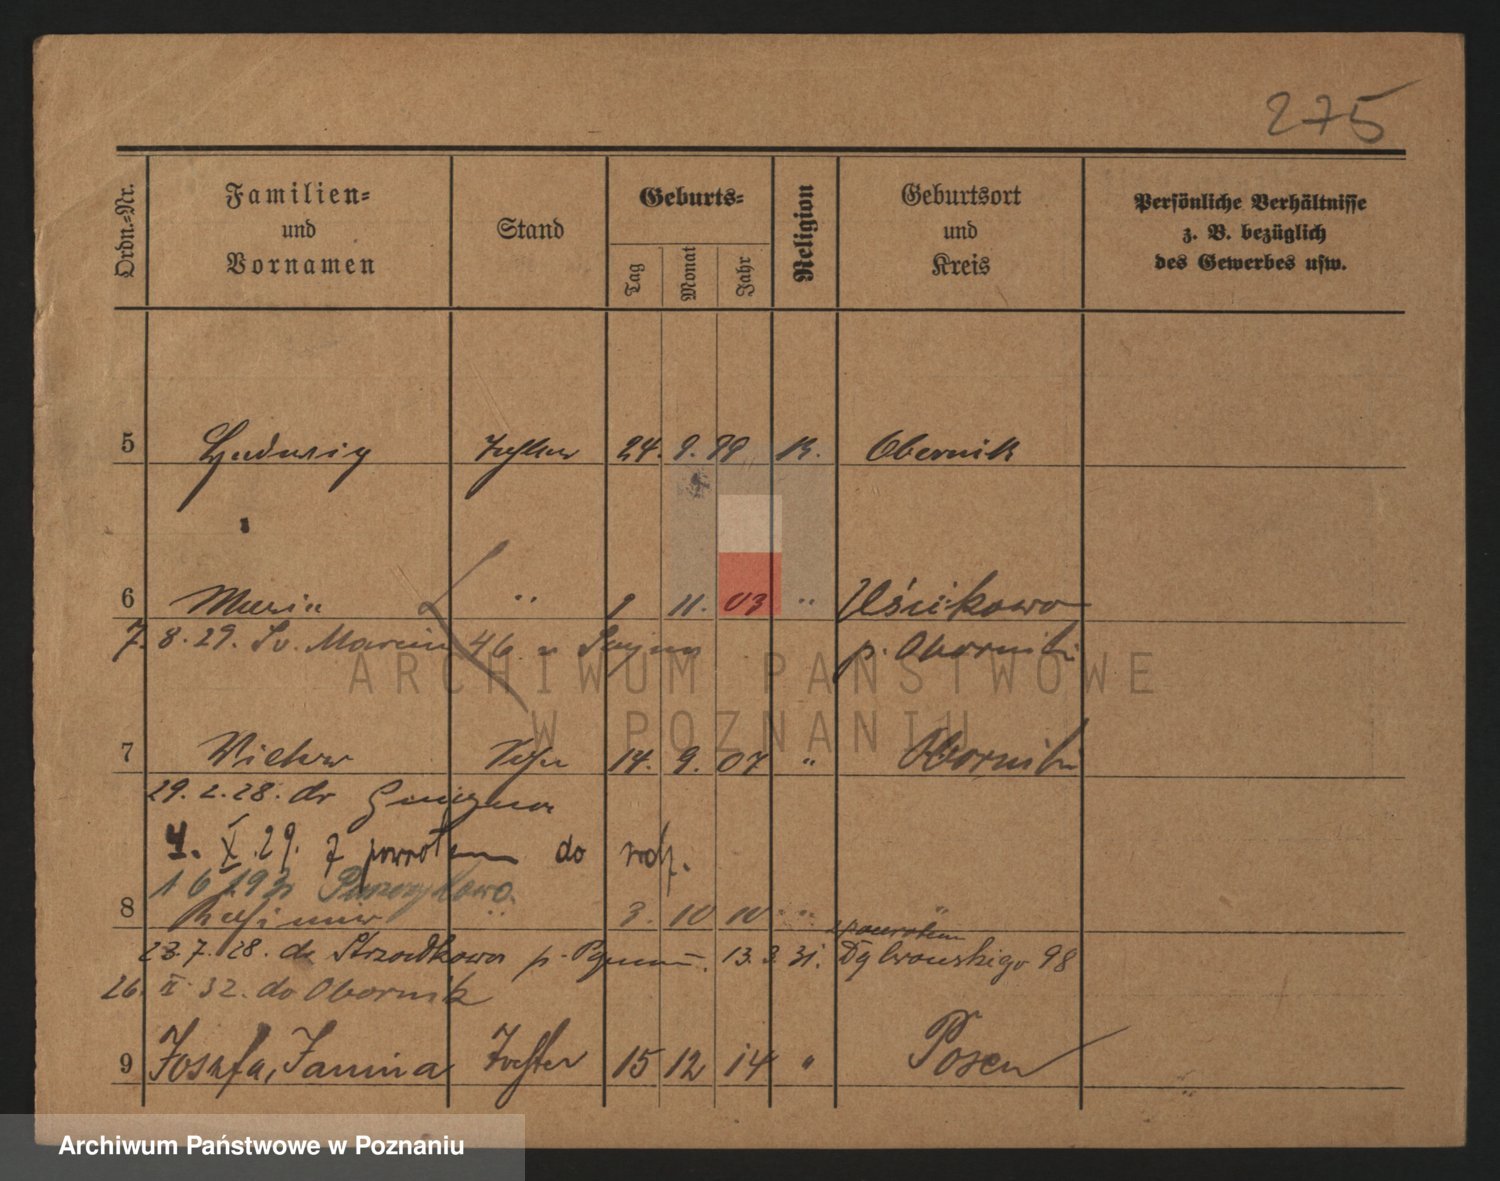 275
Ordn.-Nr.
Familien-
und
Vornamen
Stand
Geburts-
Tag Monat Jahr
Religion
Geburtsort
und
Kreis
Persönliche Verhältnisse
z. B. bezüglich
des Gewerbes usw.
5 Hedwig Tochter 24. 9. 99 K. Obernik
6 Maria " 9 11. 03 " Uścikowo
7. 8. 29. Św. Marcin 46. p. Oborniki
ARCHIWUM PAŃSTWOWE
W POZNANIU
7 Viktor Sohn 14. 9. 07 " Oborniki
29. 2. 28. do Gniezna
4. X. 29. z powrotem do rodz.
1 6 193 Puszczykowo.
8 Kasimir " 3. 10 10 " "
z powrotem
23. 7. 28. do Strzałkowa p. 13. 3. 31. Dąbrowskiego 98
26. II. 32. do Obornik
9 Josefa, Janina Tochter 15 12 14 " Posen
Archiwum Państwowe w Poznaniu